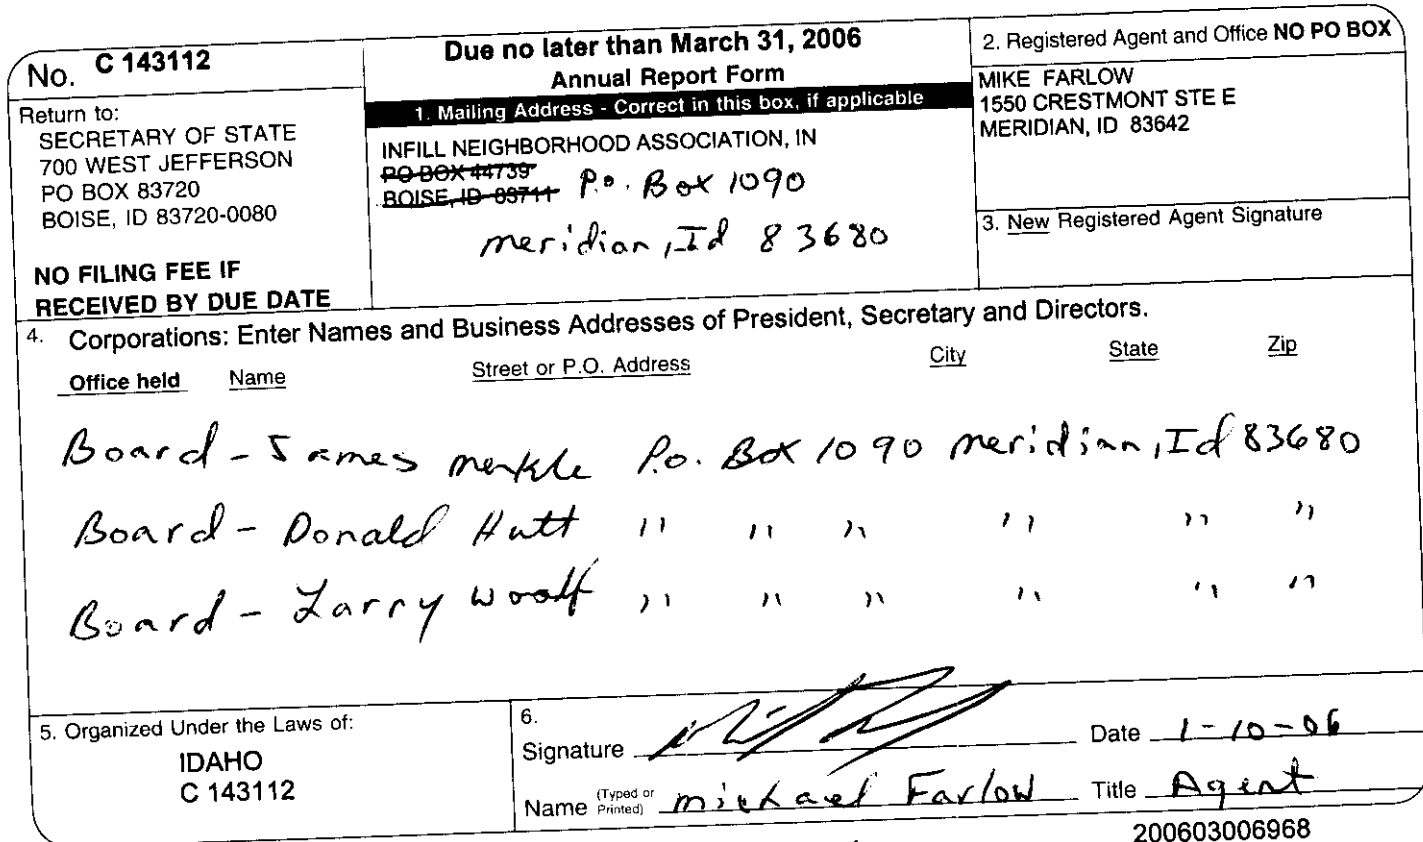 No. C 143112
Return to:
SECRETARY OF STATE
700 WEST JEFFERSON
PO BOX 83720
BOISE, ID 83720-0080
NO FILING FEE IF
RECEIVED BY DUE DATE
Due no later than March 31, 2006
Annual Report Form
1. Mailing Address - Correct in this box, if applicable
INFILL NEIGHBORHOOD ASSOCIATION, IN
PO BOX 44739
BOISE, ID 83711 P.o. Box 1090
meridian, Id 83680
2. Registered Agent and Office NO PO BOX
MIKE FARLOW
1550 CRESTMONT STE E
MERIDIAN, ID 83642
3. New Registered Agent Signature
4. Corporations: Enter Names and Business Addresses of President, Secretary and Directors.
Office held Name Street or P.O. Address City State Zip
Board - James merkle P.o. Box 1090 meridian, Id 83680
Board - Donald Hutt " " " " " "
Board - Larry woolf " " " " " "
5. Organized Under the Laws of:
IDAHO
C 143112
6.
Signature
Date 1-10-06
Name (Typed or Printed) michael Farlow Title Agent
200603006968